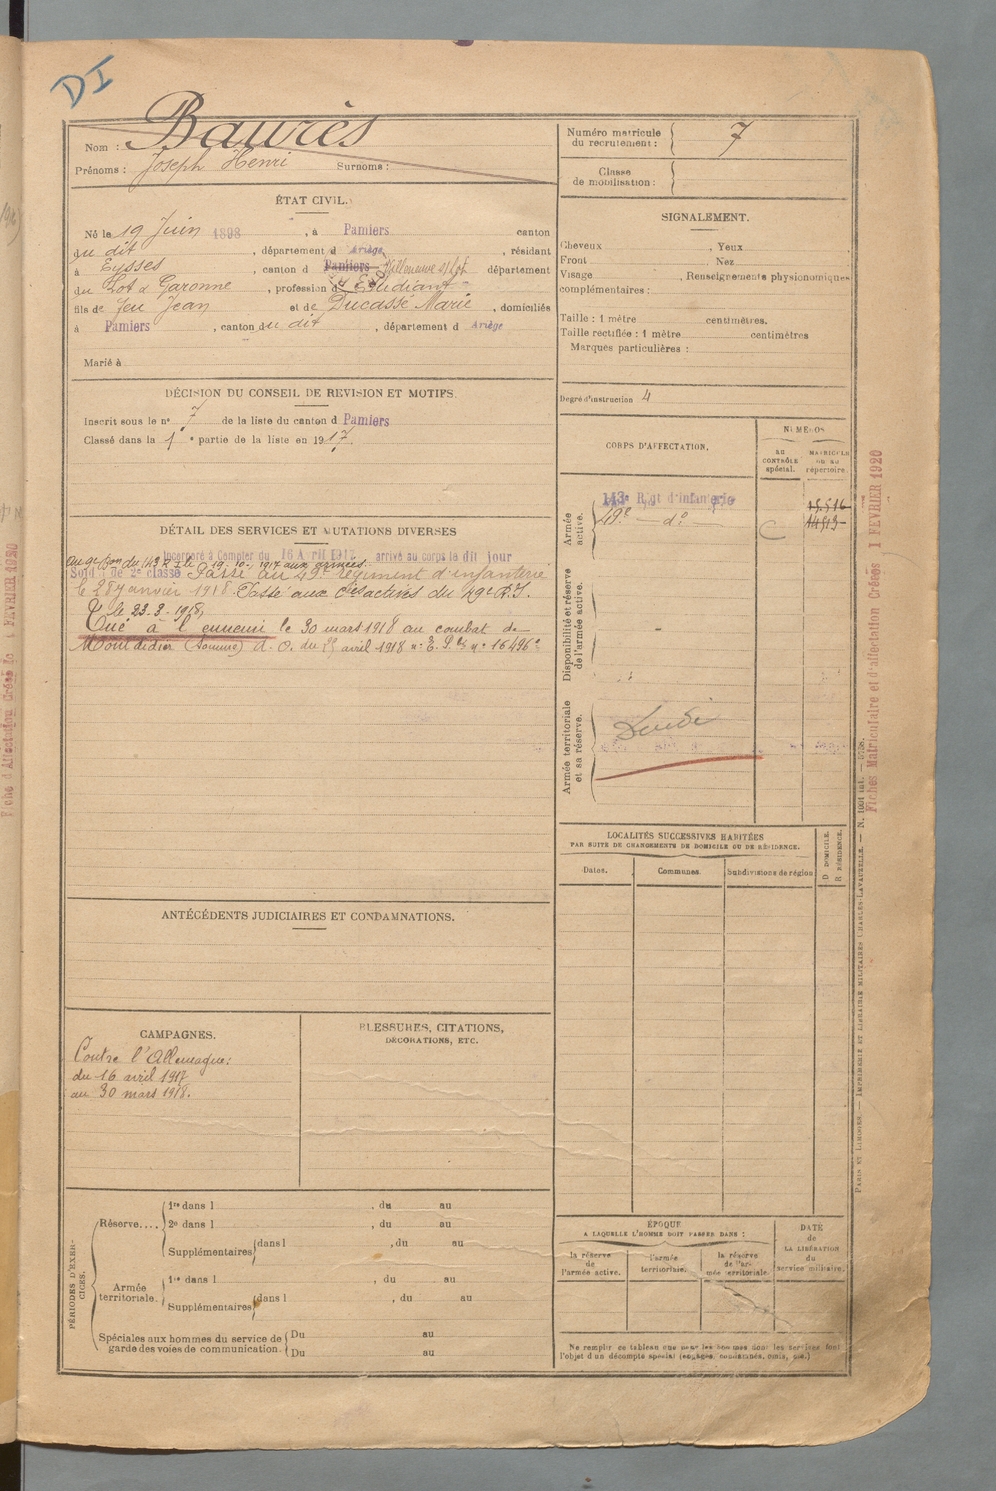 DI
Nom : Baurès
Prénoms : Joseph Henri Surnoms :
Numéro matricule du recrutement : 7
Classe de mobilisation :
ÉTAT CIVIL.
Né le 19 Juin 1898, à Pamiers canton
du dit, département d Ariège, résidant
à Eysses, canton d Pamiers Villeneuve s/Lot département
du Lot & Garonne, profession d Etudiant
fils de feu Jean et de Ducassé Marie, domiciliés
à Pamiers, canton du dit, département d Ariège
Marié à
DÉCISION DU CONSEIL DE REVISION ET MOTIFS.
Inscrit sous le n° 7 de la liste du canton d Pamiers
Classé dans la 1e partie de la liste en 1917.
DÉTAIL DES SERVICES ET MUTATIONS DIVERSES
Incorporé à Compter du 16 Avril 1917 arrivé au corps le dit jour
au 9e Bon du 143 R I le 19-10-1917 aux armées.
Soldat de 2e classe Passé au 49e régiment d'infanterie
le 28 Janvier 1918. Passé aux Cies actives du 49e R.I.
le 23-3-1918,
Tué à l'ennemi le 30 mars 1918 au combat de
Montdidier (Somme) d. O. du avril 1918 n° 16496
ANTÉCÉDENTS JUDICIAIRES ET CONDAMNATIONS.
CAMPAGNES.
Contre l'Allemagne:
du 16 avril 1917
au 30 mars 1918.
BLESSURES, CITATIONS,
DÉCORATIONS, ETC.
PÉRIODES D'EXERCICES.
Réserve....
1re dans l , du au
2e dans l , du au
Supplémentaires dans l , du au
Armée territoriale.
1re dans l , du au
Supplémentaires dans l , du au
Spéciales aux hommes du service de Du au
garde des voies de communication. Du au
SIGNALEMENT.
Cheveux , Yeux
Front , Nez
Visage , Renseignements physionomiques
complémentaires :
Taille : 1 mètre centimètres.
Taille rectifiée : 1 mètre centimètres
Marques particulières :
Degré d'instruction 4
CORPS D'AFFECTATION.
NUMÉROS
AU CONTRÔLE spécial.
MATRICULE OU AU répertoire.
Armée active.
143e Rgt d'Infanterie 15516
49e — d° — C 14513
Disponibilité et réserve de l'armée active.
Armée territoriale et sa réserve.
LOCALITÉS SUCCESSIVES HABITÉES
PAR SUITE DE CHANGEMENTS DE DOMICILE OU DE RÉSIDENCE.
Dates. Communes. Subdivisions de région
D DOMICILE.
R RÉSIDENCE.
ÉPOQUE
A LAQUELLE L'HOMME DOIT PASSER DANS :
la réserve de l'armée active.
l'armée territoriale.
la réserve de l'armée territoriale.
DATE de LA LIBÉRATION du service militaire.
Ne remplir ce tableau que pour les hommes dont les services font
l'objet d'un décompte spécial (engagés, condamnés, omis, etc.)
PARIS ET LIMOGES. — IMPRIMERIE ET LIBRAIRIE MILITAIRES CHARLES-LAVAUZELLE. — N. 1001 int.
Fiches Matriculaire et d'affectation Créées 1 FEVRIER 1920
Fiche d'Affectation Créée le 1 FEVRIER 1920